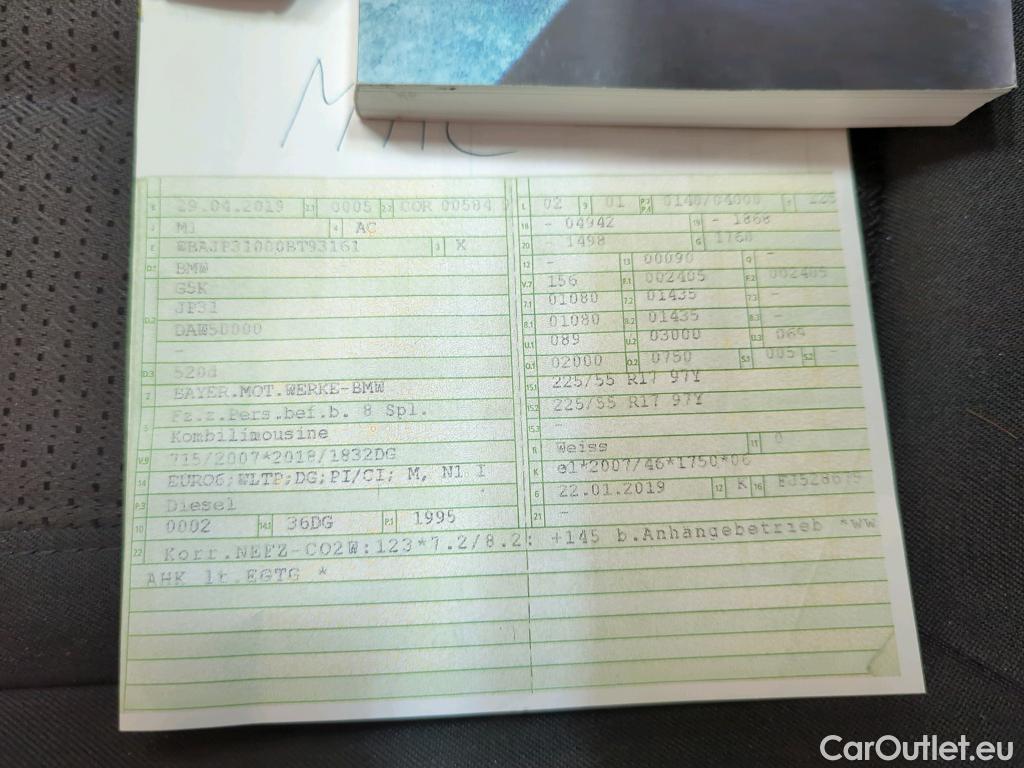 B 29.04.2019 2.1 0005 2.2 COR 00584
J M1 4 AC
E WBAJP31000BT93161 3 X
D.1 BMW
G5K
D.2 JP31
DAW50000
-
D.3 520d
2 BAYER.MOT.WERKE-BMW
5 Fz.z.Pers.bef.b. 8 Spl.
Kombilimousine
V.9 715/2007*2018/1832DG
14 EURO6;WLTP;DG;PI/CI; M, N1 I
P.3 Diesel
10 0002 14.1 36DG P.1 1995
L 02 9 01 P.2 P.4 0140/04000 T 225
18 - 04942 19 - 1868
20 - 1498 G 1760
12 - 13 00090 Q -
V.7 156 F.1 002405 F.2 002405
7.1 01080 7.2 01435 7.3 -
8.1 01080 8.2 01435 8.3 -
U.1 089 U.2 03000 U.3 069
O.1 02000 O.2 0750 S.1 005 S.2 -
15.1 225/55 R17 97Y
15.2 225/55 R17 97Y
15.3 -
R Weiss 11 0
K e1*2007/46*1750*06
6 22.01.2019 17 K 16
21 -
22 Korr.NEFZ-CO2W:123*7.2/8.2: +145 b.Anhängebetrieb *WW
AHK lt.EGTG *
CarOutlet.eu